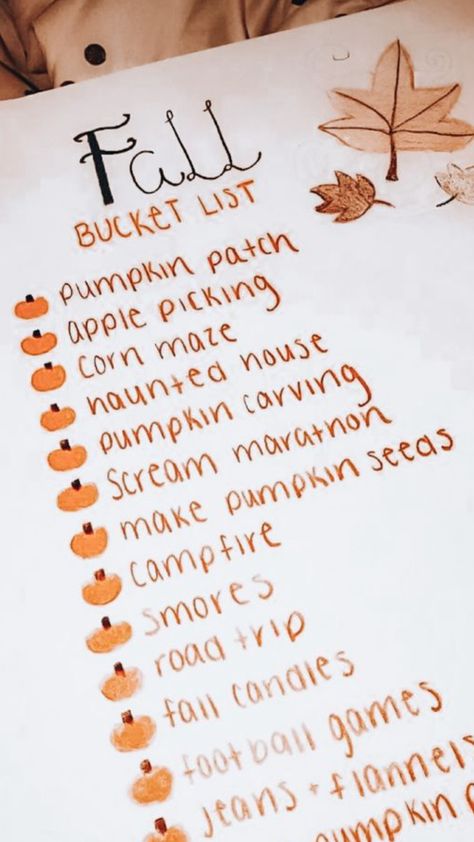 Fall
BUCKET LIST
pumpkin patch
apple picking
corn maze
haunted house
pumpkin carving
Scream marathon
make pumpkin seeds
campfire
smores
road trip
fall candles
football games
jeans + flannels
pumpkin